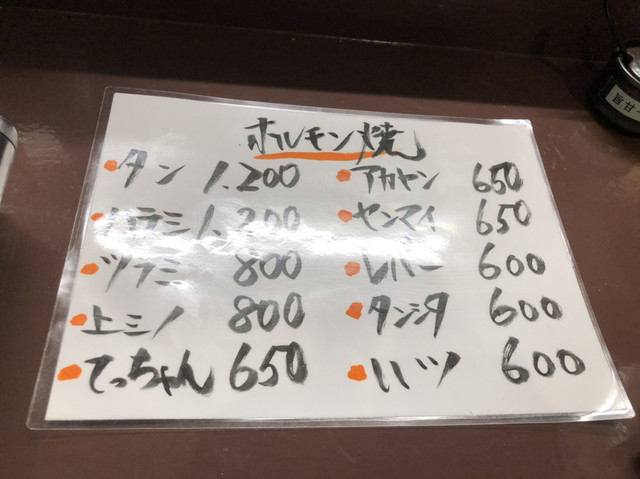 ホルモン焼
タン 1,200
ハラミ 1,200
ツラミ 800
上ミノ 800
てっちゃん 650
アカセン 650
センマイ 650
レバー 600
タンシタ 600
ハツ 600
旨甘